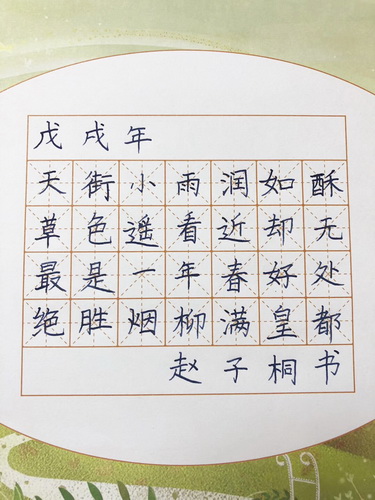 戊戌年
天街小雨润如酥
草色遥看近却无
最是一年春好处
绝胜烟柳满皇都
赵子桐书